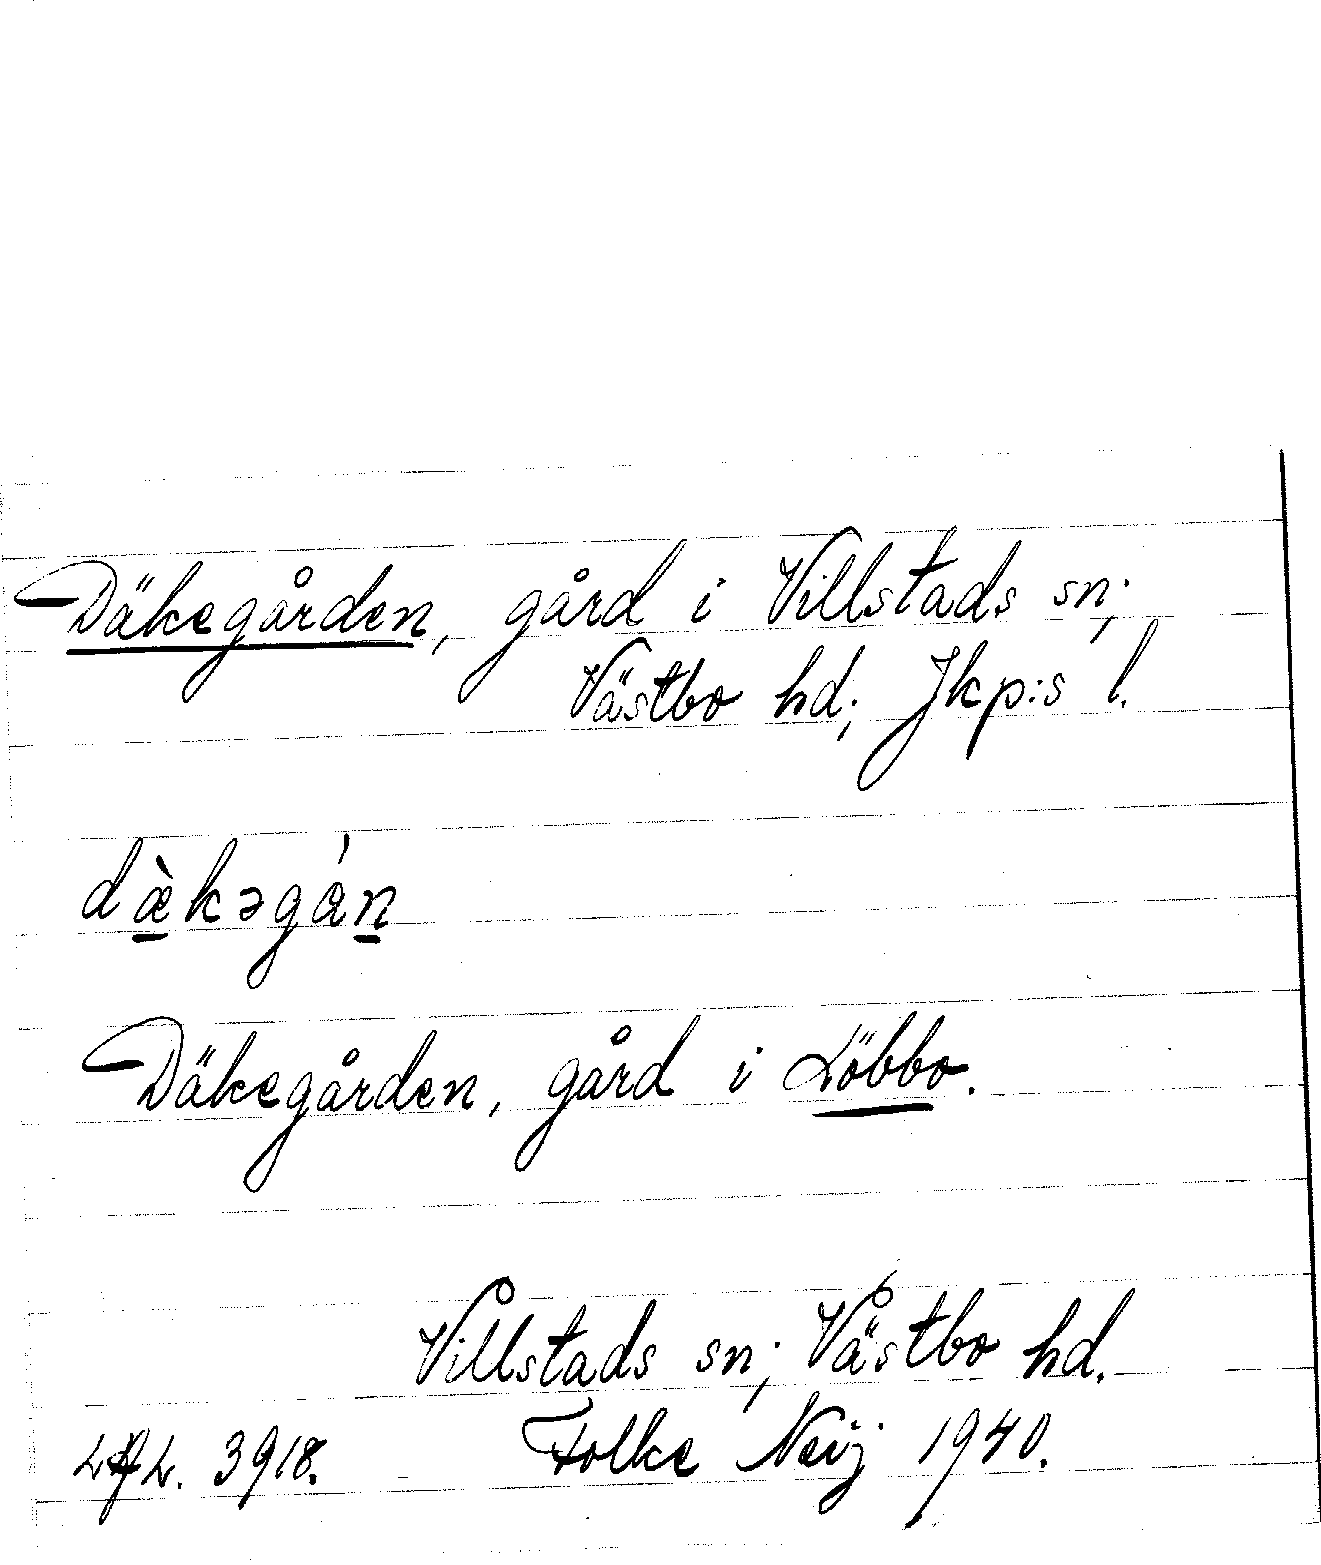 Däkegården, gård i Villstads sn;
Västbo hd; Jkp:s l.
dæ̀kəgån
Däkegården, gård i Löbbo.
Villstads sn; Västbo hd.
3918. Folke Neij 1940.